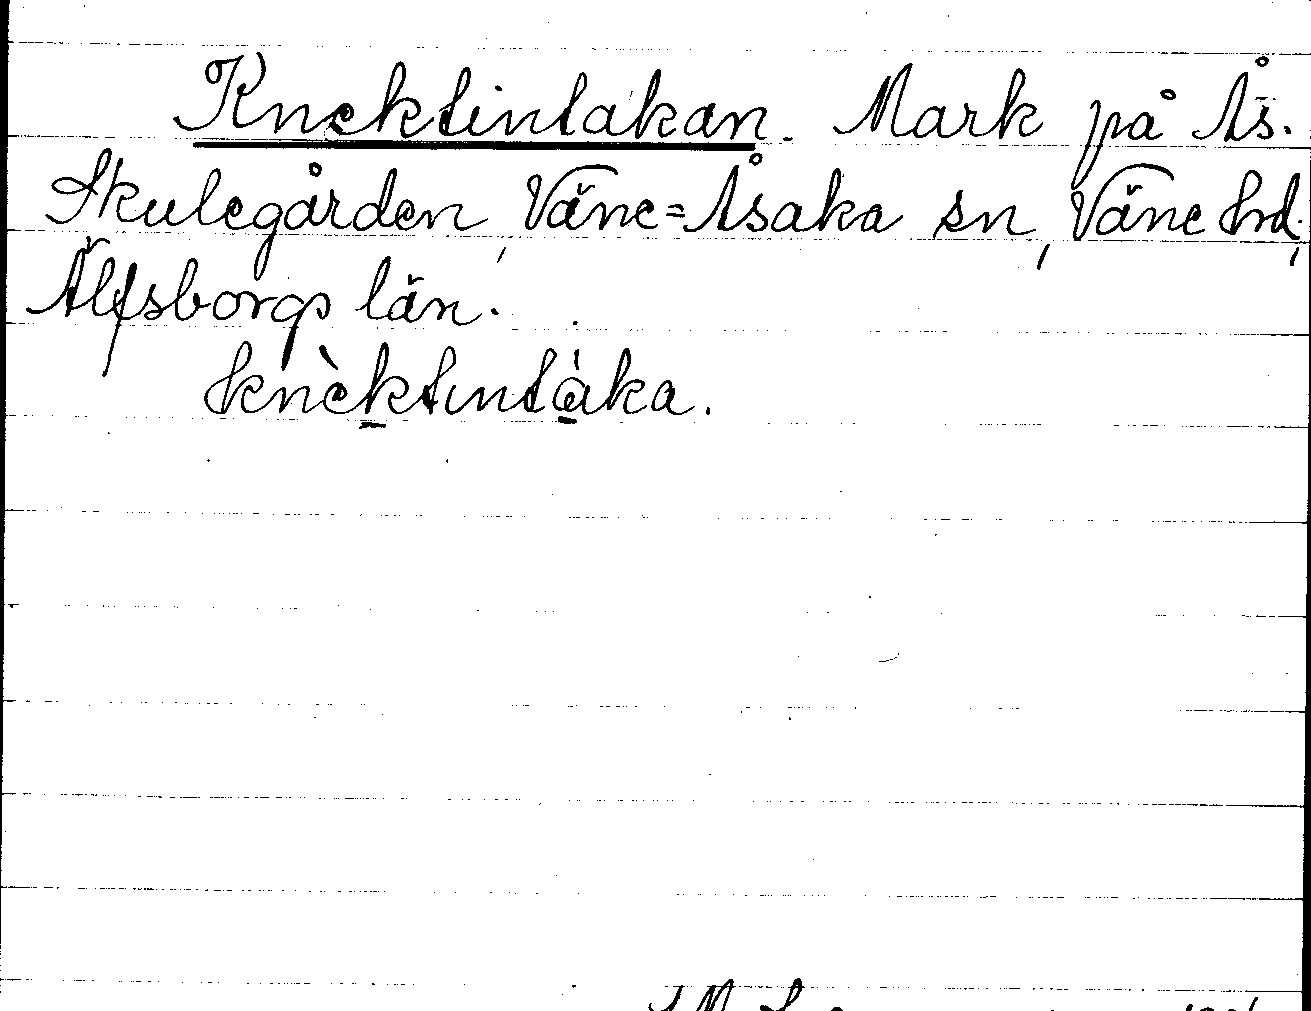 Knektintakan. Mark på Ås.
Skulegården, Väne=Åsaka sn, Väne hd,
Älfsborgs län.
knèktintàka.